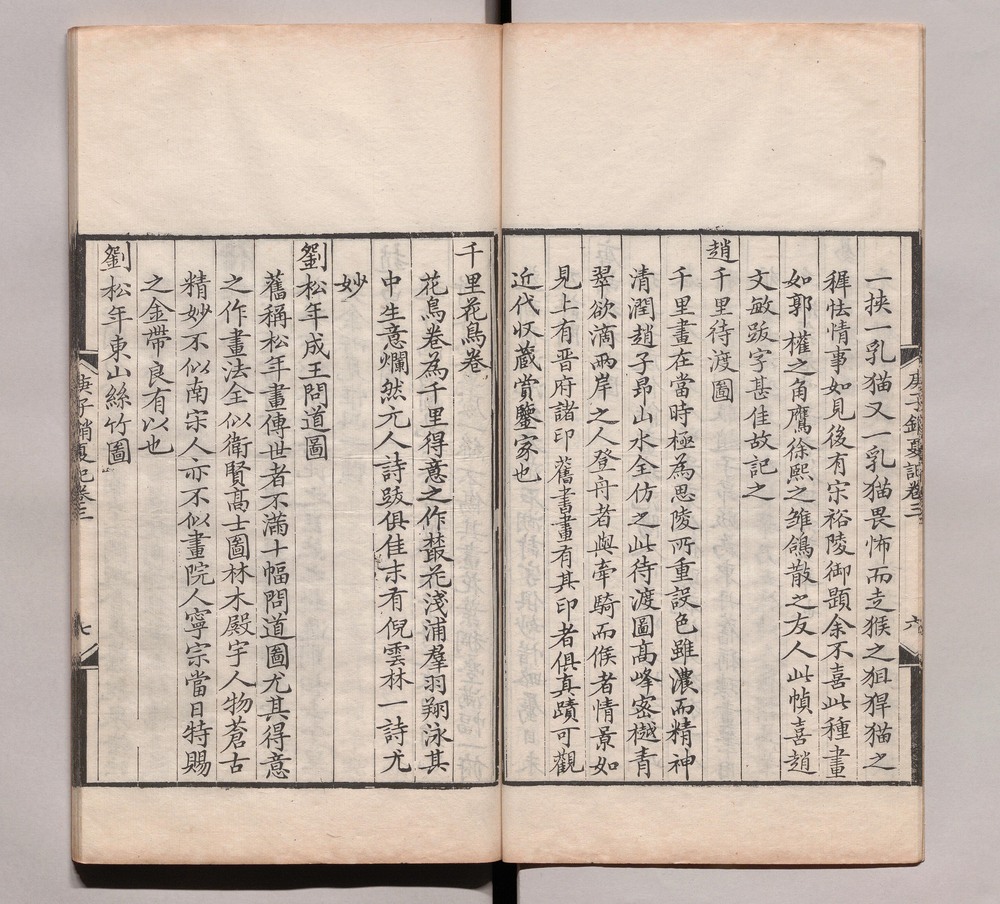 一挾一乳猫又一乳猫畏怖而走猴之狙猂猫之
穉怯情事如見後有宋裕陵御題余不喜此種畫
如郭權之角鷹徐熙之雏鴿散之友人此幀喜趙
文敏跋字甚佳故記之
趙千里待渡圖
千里畫在當時極為思陵所重設色雖濃而精神
清潤趙子昂山水全仿之此待渡圖高峰密樾青
翠欲滴兩岸之人登舟者與牽騎而候者情景如
見上有晋府諸印舊書畫有其印者俱真蹟可觀
近代収蔵賞鑒家也
庚子銷夏記卷三
六
千里花鳥卷
花鳥卷為千里得意之作叢花淺浦羣羽翔泳其
中生意爛然元人詩跋俱佳末有倪雲林一詩尤
妙
劉松年成王問道圖
舊稱松年畫傳世者不滿十幅問道圖尤其得意
之作畫法全似衛賢高士圖林木殿宇人物蒼古
精妙不似南宋人亦不似畫院人寧宗當日特賜
之金帶良有以也
劉松年東山絲竹圖
庚子銷夏記卷三
七